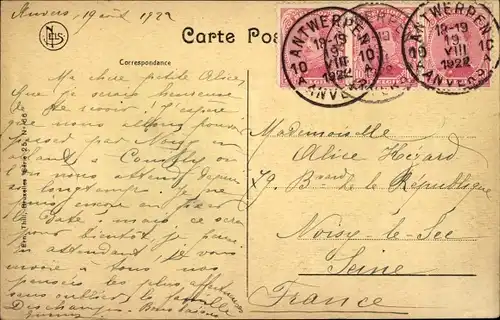 Anvers, 19 août 1922
Carte Pos
Correspondance
NELS
ANTWERPEN
18-19
19
VIII
1922
10 A 10
ANVERS
ANTWERPEN
18-19
19
VIII
1922
10 A 10
ANVERS
Ma chère petite Alice,
Que je serais heureuse
de te revoir ! J'espère
que nous allons pouvoir
passer par Noisy en
allant à
où l'on nous attend depuis
longtemps. Je ne
puis encore en fixer
la date, mais ce sera
pour bientôt, je pense
en attendant, je vous
envoie à tous nos
pensées les plus affectueuses
sans oublier la famille
Deschamps. Bons baisers
Mademoiselle
Alice Hézard
79, Bd de la République
Noisy-le-Sec
Seine
France
Ern. Thill, Bruxelles Série 25, No 66